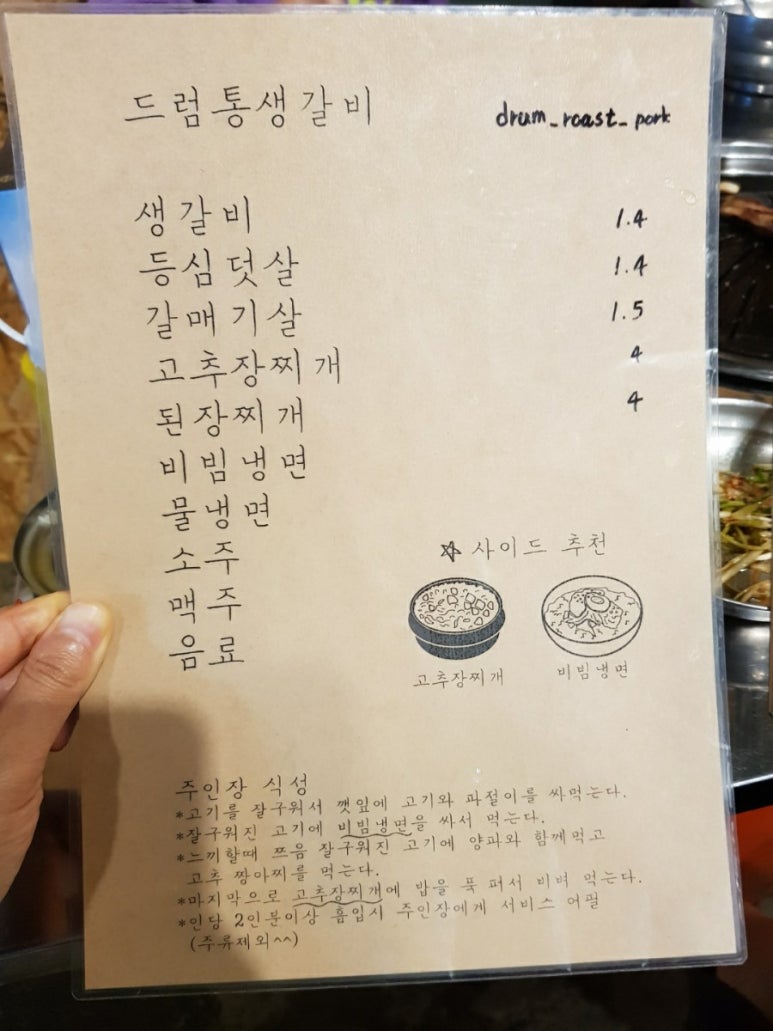 드럼통생갈비
drum_roast_pork
생갈비 1.4
등심덧살 1.4
갈매기살 1.5
고추장찌개 4
된장찌개 4
비빔냉면
물냉면
소주
맥주
음료
☆ 사이드 추천
고추장찌개 비빔냉면
주인장 식성
*고기를 잘구워서 깻잎에 고기와 파절이를 싸먹는다.
*잘구워진 고기에 비빔냉면을 싸서 먹는다.
*느끼할때 쯔음 잘구워진 고기에 양파와 함께먹고
고추 짱아찌를 먹는다.
*마지막으로 고추장찌개에 밥을 푹 퍼서 비벼 먹는다.
*인당 2인분이상 흡입시 주인장에게 서비스 어필
(주류제외^^)